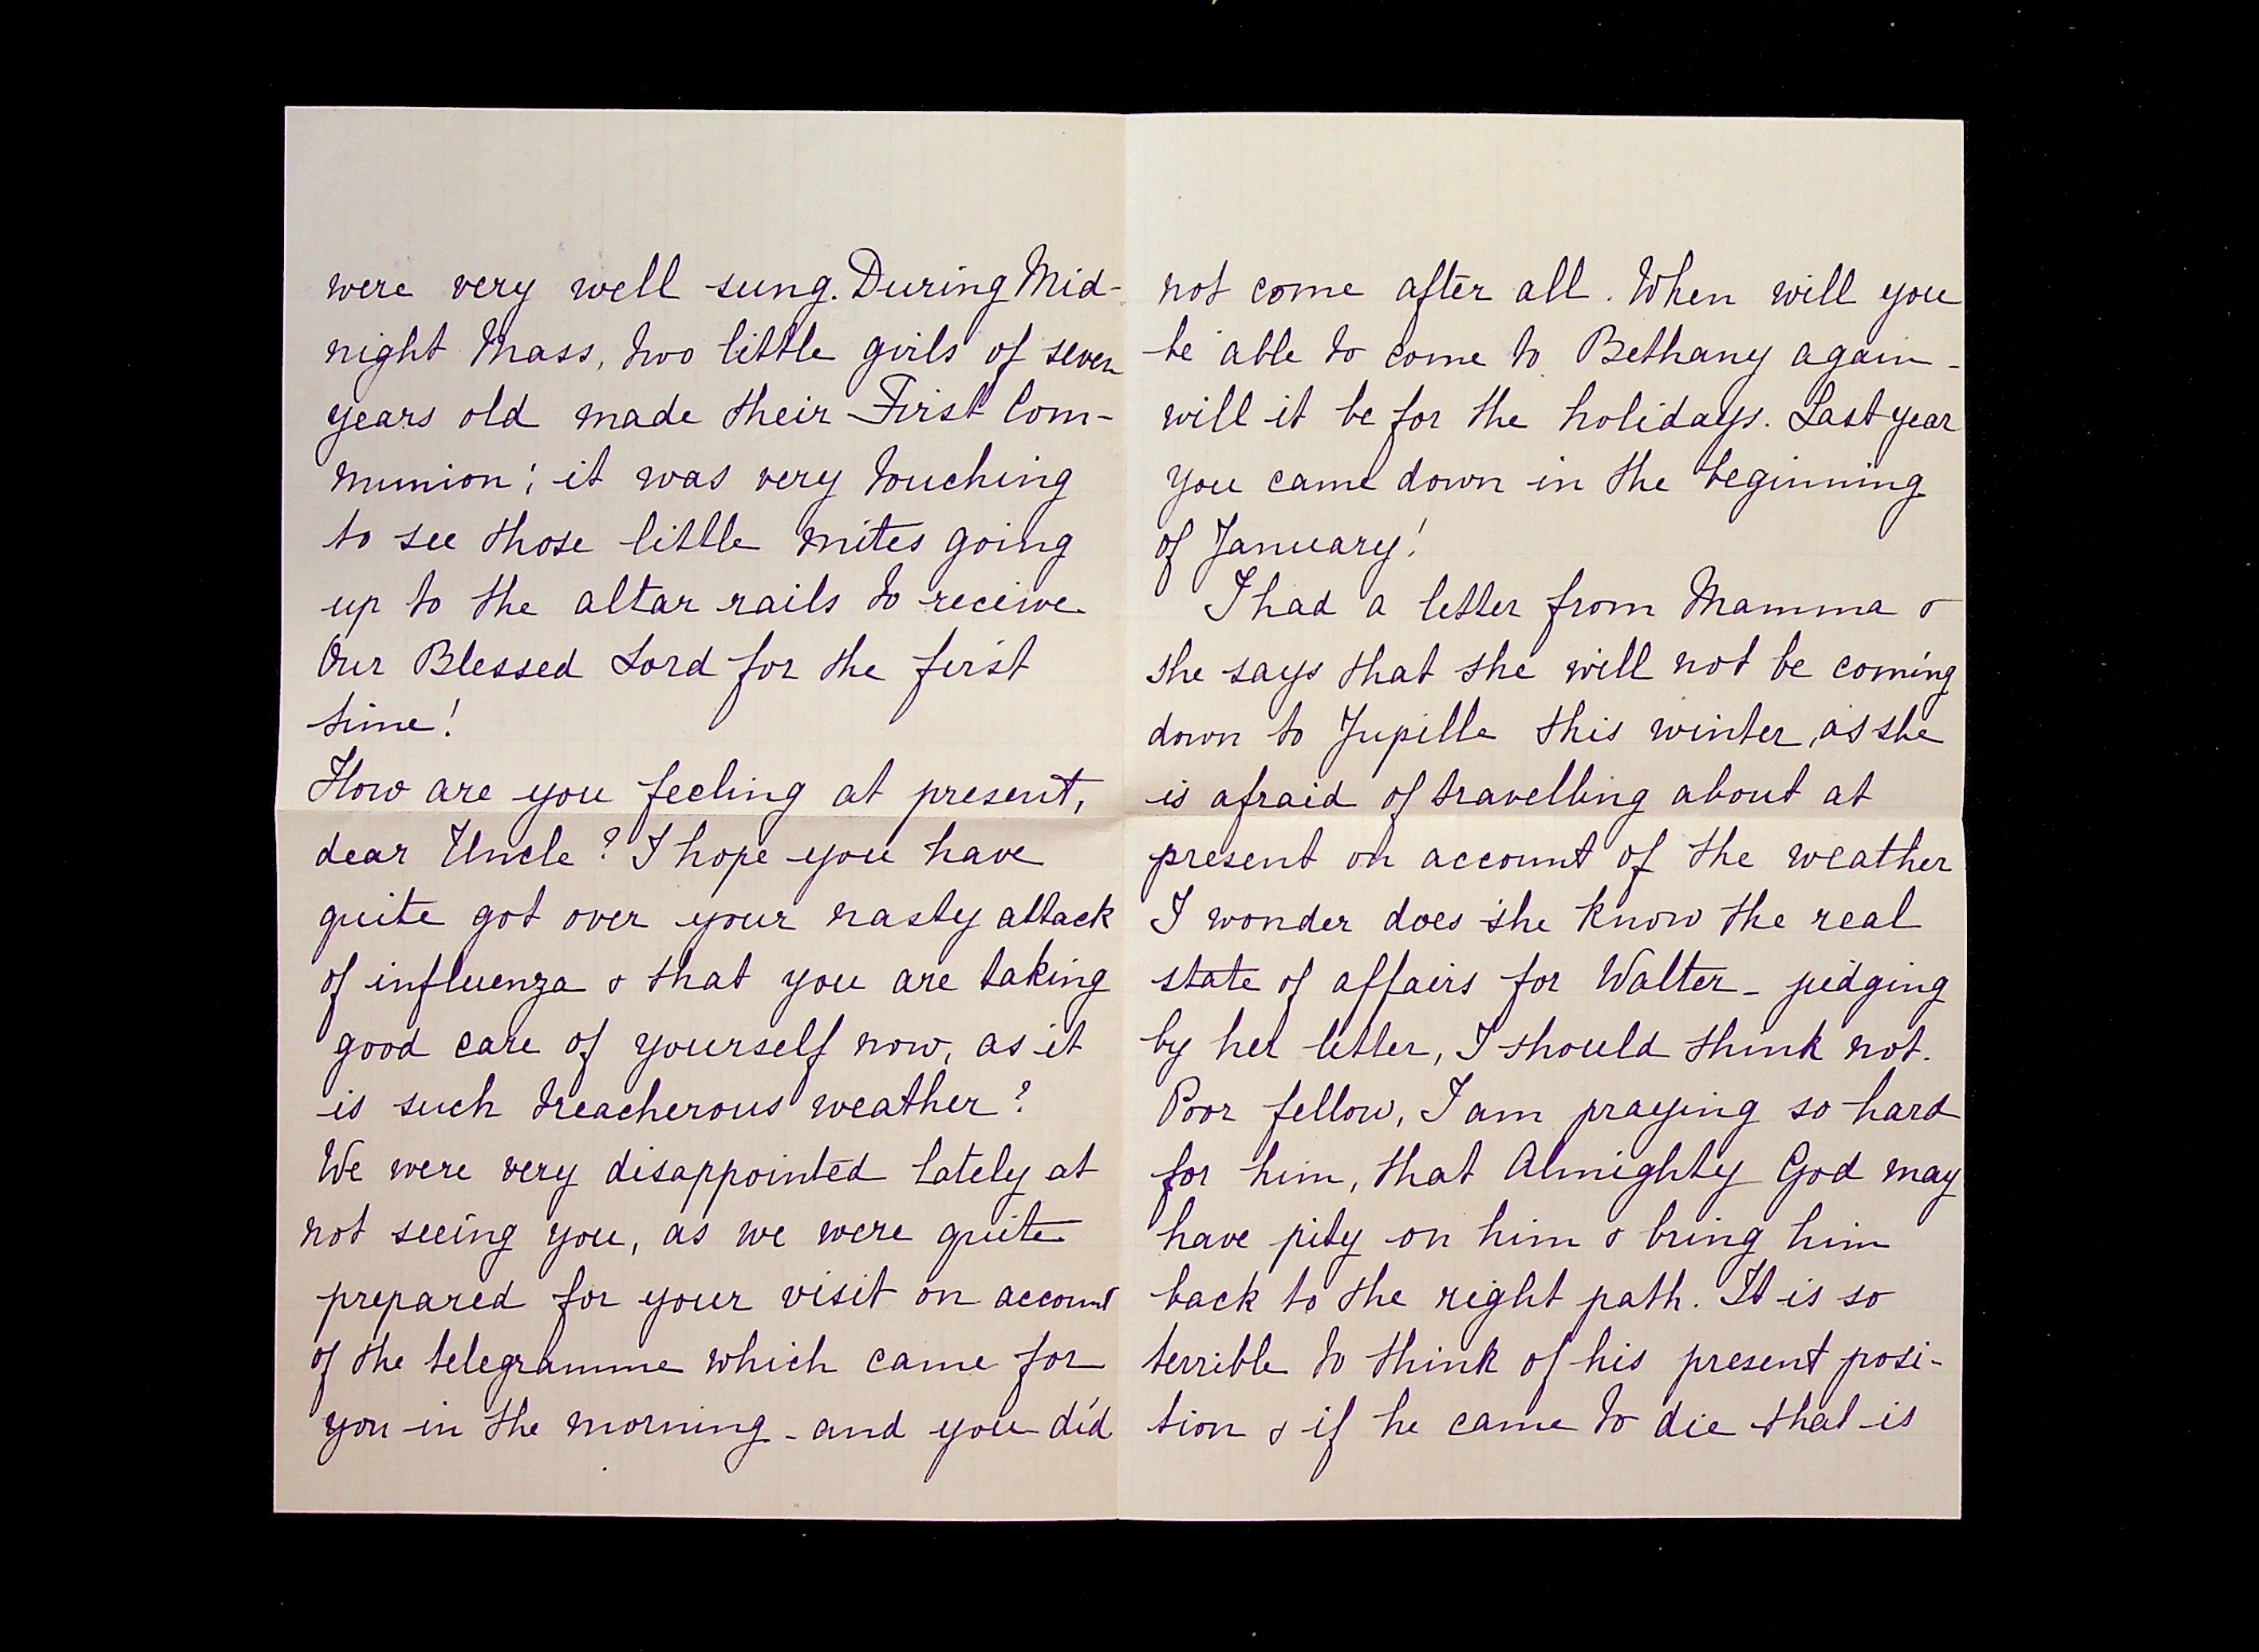 were very well sung. During Mid-
night Mass, two little girls of seven
years old made their First Com-
munion; it was very touching
to see those little mites going
up to the altar rails to receive
Our Blessed Lord for the first
time!
How are you feeling at present,
dear Uncle? I hope you have
quite got over your nasty attack
of influenza & that you are taking
good care of yourself now, as it
is such treacherous weather?
We were very disappointed lately at
not seeing you, as we were quite
prepared for your visit on account
of the telegramme which came for
you in the morning - and you did
not come after all. When will you
be able to come to Bethany again -
will it be for the holidays. Last year
you came down in the beginning
of January!
I had a letter from Mamma &
she says that she will not be coming
down to Jupille this winter, as she
is afraid of travelling about at
present on account of the weather
I wonder does she know the real
state of affairs for Walter - judging
by her letter, I should think not.
Poor fellow, I am praying so hard
for him, that Almighty God may
have pity on him & bring him
back to the right path. It is so
terrible to think of his present posi-
tion & if he came to die that is